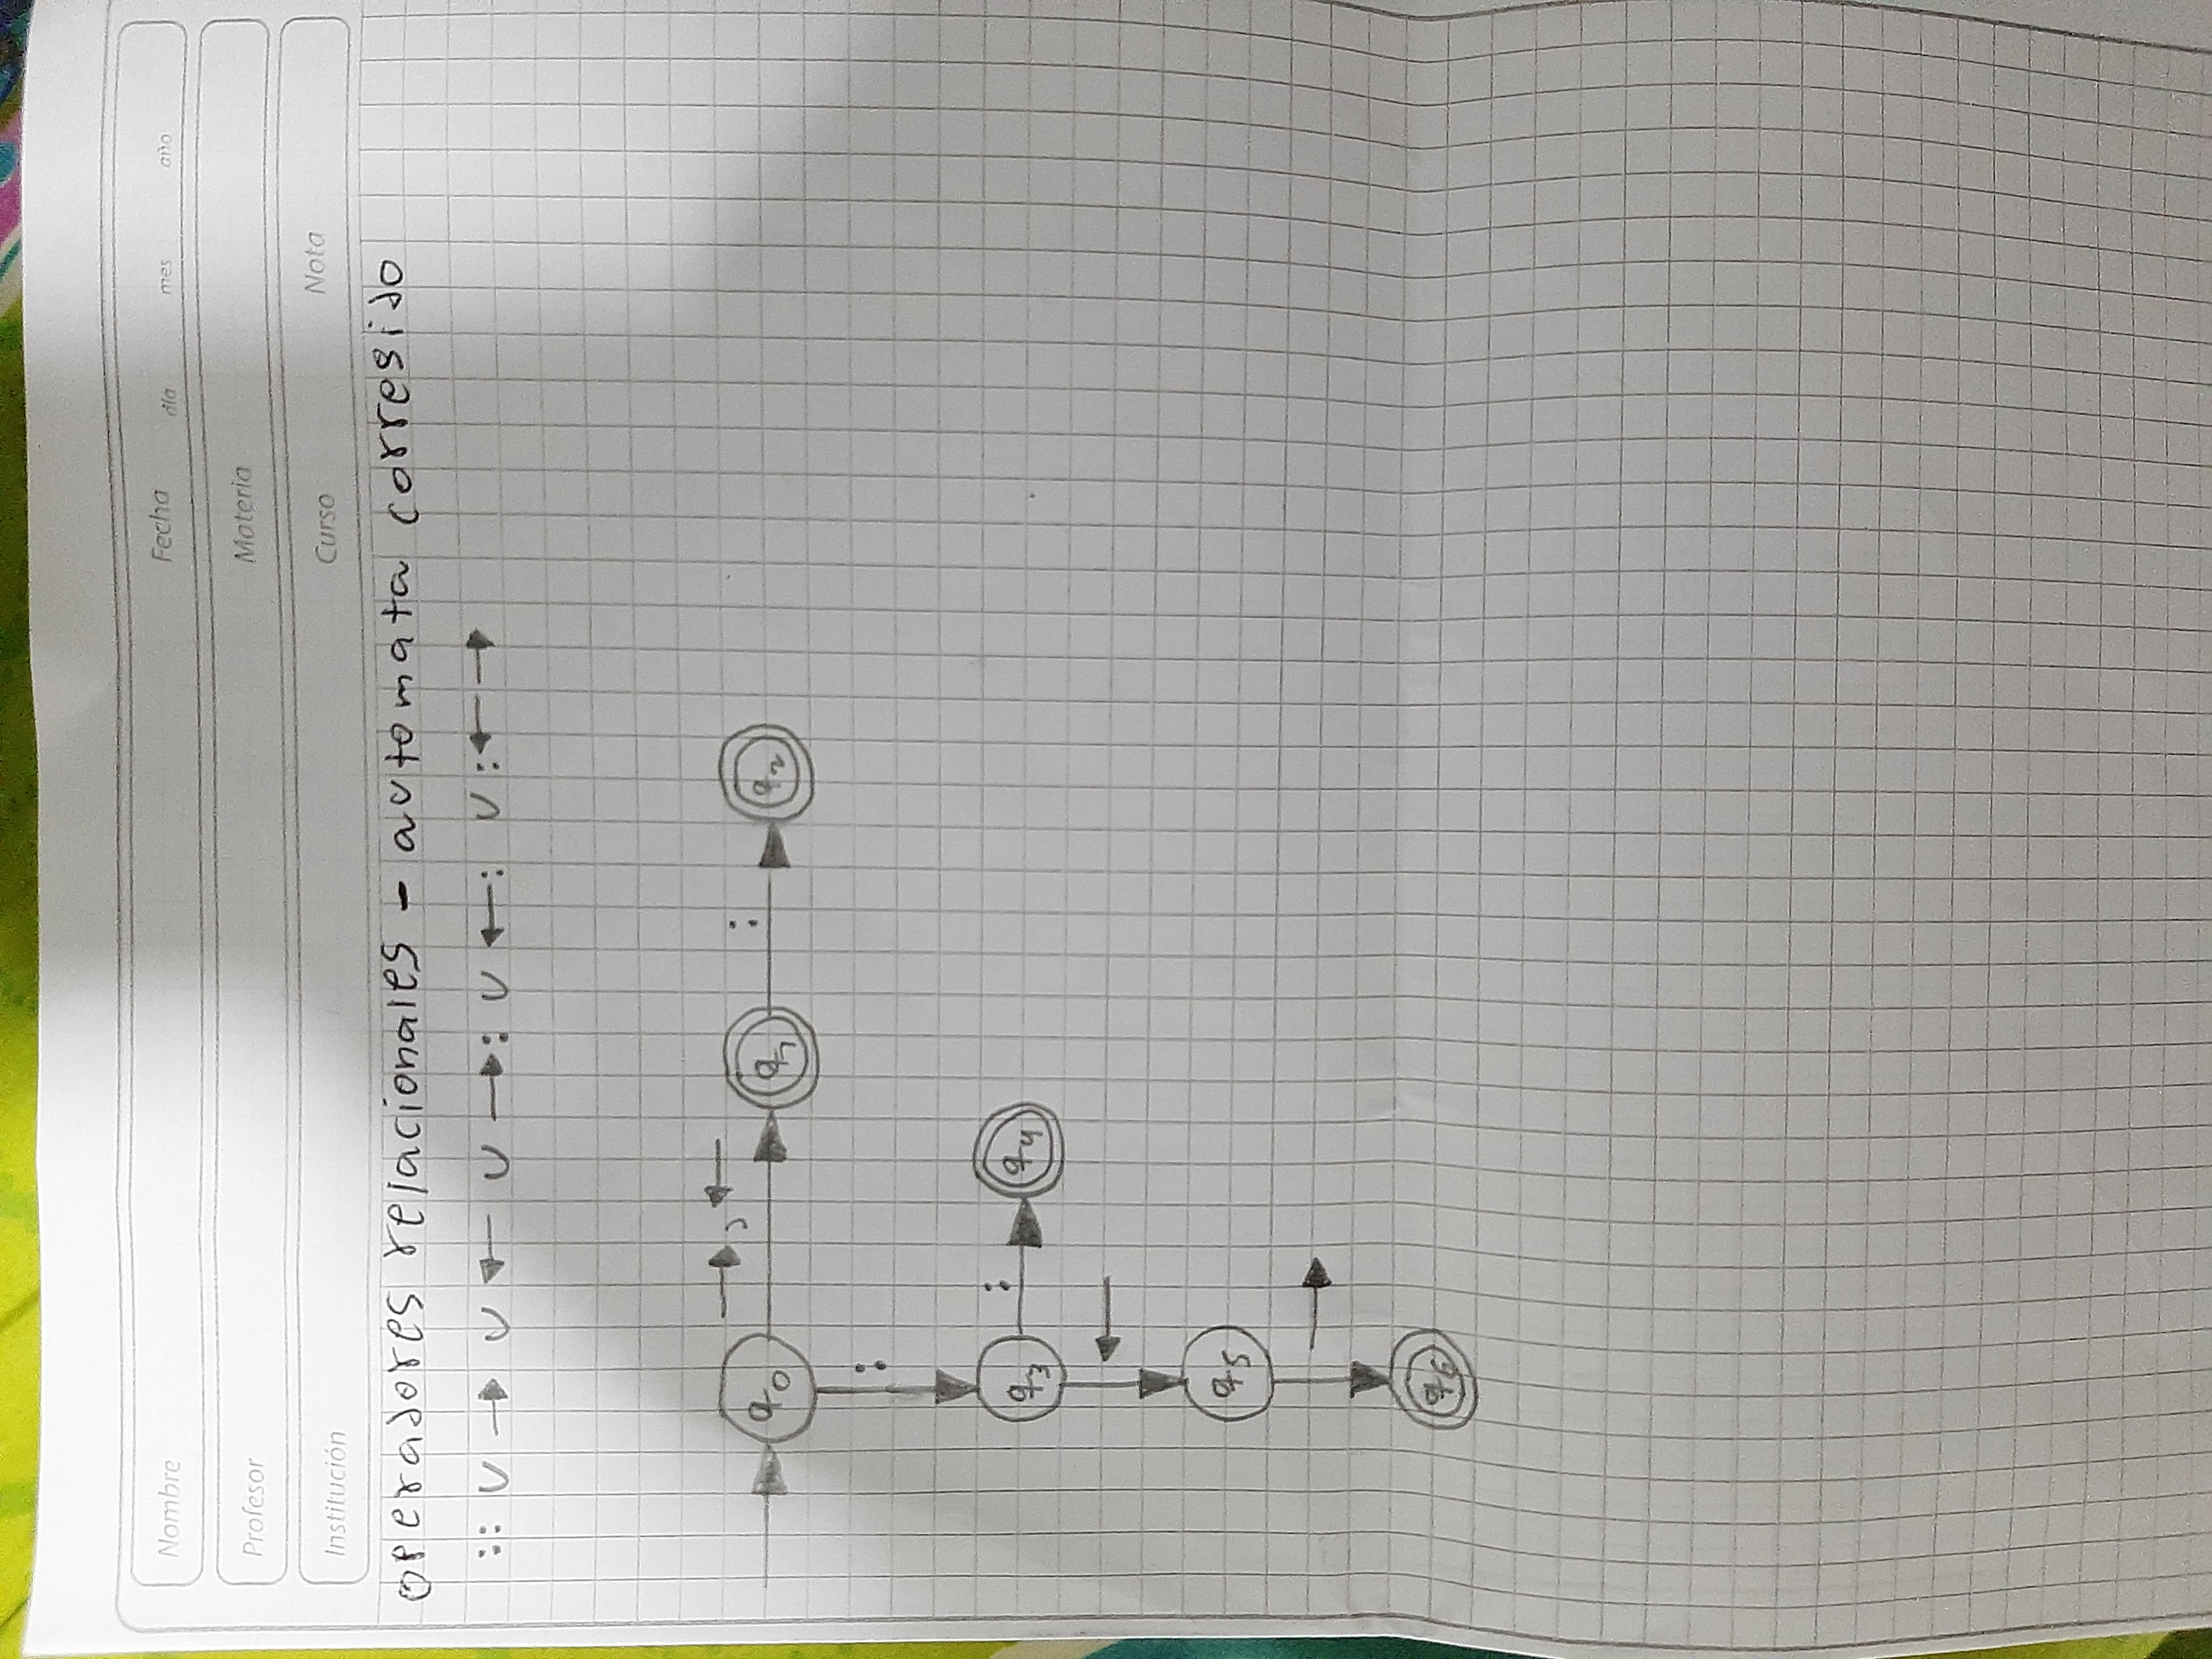 Nombre Fecha día mes año
Profesor Materia
Institución Curso Nota
operadores relacionales - automata corresido
:: ∪ → ∪ ← ∪ →: ∪ ←: ∪ :←→
→ , ← :
q0 q1 q2
:
:
q3 q4
←
q5
→
q6